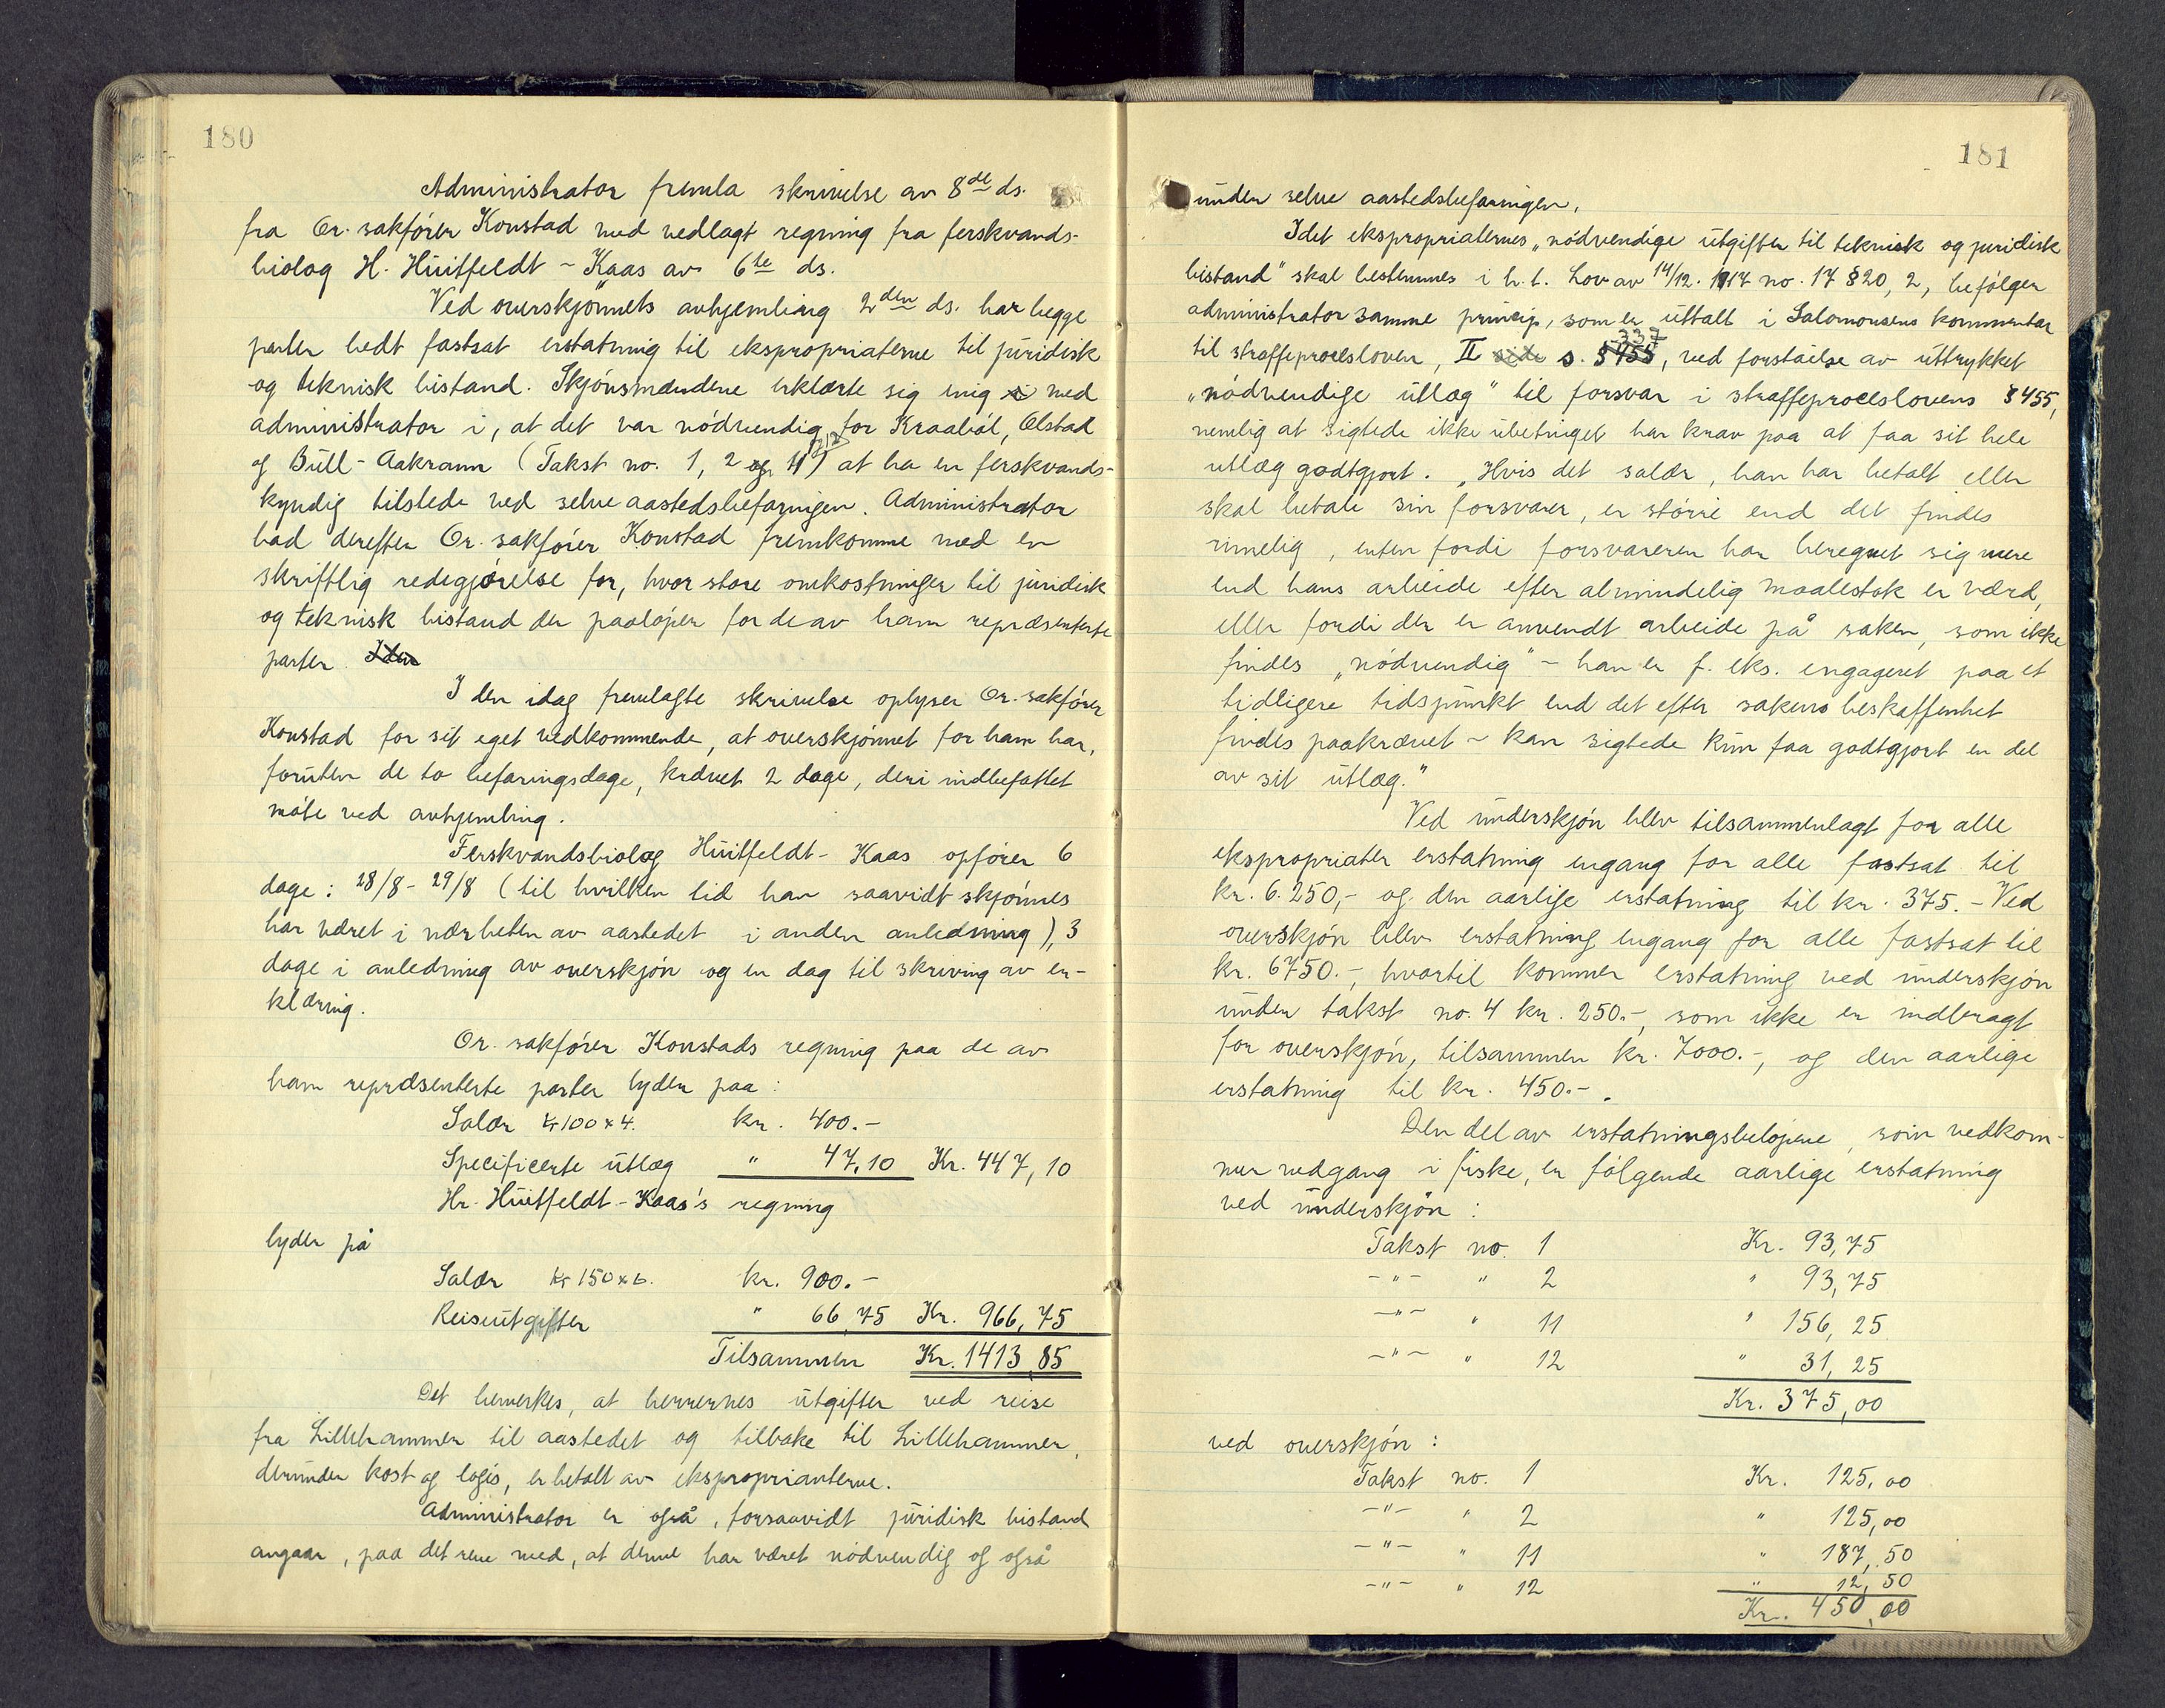 180
Administrator fremla skrivelse av 8de ds.
fra Or. sakfører Konstad med vedlagt regning fra ferskvands-
biolog H. Huitfeldt-Kaas av 6te ds.
Ved overskjønnets avhjemling 2den ds. har begge
parter bedt fastsat erstatning til ekspropriaterne til juridisk
og teknisk bistand. Skjønsmændene erklærte sig enig i med
administrator i, at det var nødvendig for Kraabøl, Olstad
og Bull-Aakrann (Takst no. 1, 2 og 11) at ha en ferskvands-
kyndig tilstede ved selve aastedsbefaringen. Administrator
bad derefter Or. sakfører Konstad fremkomme med en
skriftlig redegjørelse for, hvor store omkostninger til juridisk
og teknisk bistand der paaløper for de av ham repræsenterte
parter. Iden
I den idag fremlagte skrivelse oplyser Or. sakfører
Konstad for sit eget vedkommende, at overskjønnet for ham har,
foruten de to befaringsdage, krævet 2 dage, deri indbefattet
møte ved avhjemling.
Ferskvandsbiolog Huitfeldt-Kaas opfører 6
dage: 28/8 - 29/8 (til hvilken tid han saavidt skjønnes
har været i nærheten av aastedet i anden anledning), 3
dage i anledning av overskjøn og en dag til skriving av er-
klæring.
Or. sakfører Konstads regning paa de av
ham repræsenterte parter lyder paa:
Salær kr 100 x 4. kr. 400.-
Specificerte utlæg " 47,10 Kr. 447,10
Hr. Huitfeldt-Kaas's regning
lyder på
Salær kr 150 x 6. kr. 900.-
Reiseutgifter " 66,75 Kr. 966,75
Tilsammen Kr. 1413,85
Det bemerkes, at herrernes utgifter ved reise
fra Lillehammer til aastedet og tilbake til Lillehammer,
derunder kost og logis, er betalt av eksproprianterne.
Administrator er også, forsaavidt juridisk bistand
angaar, paa det rene med, at denne har været nødvendig og også
181
under selve aastedsbefaringen.
Idet ekspropriaternes „nødvendige utgifter til teknisk og juridisk
bistand" skal bestemmes i h. t. Lov av 14/12. 1917 no. 17 § 20, 2, befølger
administrator samme princip, som er uttalt i Salomonsens kommentar
til straffeprocesloven, II side s. § 455 337, ved forståelse av uttrykket
„nødvendige utlæg" til forsvar i straffeproceslovens § 455,
nemlig at sigtede ikke ubetinget har krav paa at faa sit hele
utlæg godtgjort. „Hvis det salær, han har betalt eller
skal betale sin forsvarer, er større end det findes
rimelig, enten fordi forsvareren har beregnet sig mere
end hans arbeide efter almindelig maalestok er værd,
eller fordi der er anvendt arbeide på saken, som ikke
findes „nødvendig" - han er f. eks. engageret paa et
tidligere tidspunkt end det efter sakens beskaffenhet
findes paakrævet - kan sigtede kun faa godtgjort en del
av sit utlæg."
Ved underskjøn blev tilsammenlagt for alle
ekspropriater erstatning engang for alle fastsat til
kr. 6.250,- og den aarlige erstatning til kr. 375.- Ved
overskjøn blev erstatning engang for alle fastsat til
kr. 6750.-, hvortil kommer erstatning ved underskjøn
under takst no. 4 kr. 250.-, som ikke er indbragt
for overskjøn, tilsammen kr. 7000.-, og den aarlige
erstatning til kr. 450.-.
Den del av erstatningsbeløpene, som vedkom-
mer nedgang i fiske, er følgende aarlige erstatning
ved underskjøn:
Takst no. 1 Kr. 93,75
-"- " 2 " 93,75
-"- " 11 " 156,25
-"- " 12 " 31,25
Kr. 375,00
ved overskjøn:
Takst no. 1 Kr. 125,00
-"- " 2 " 125,00
-"- " 11 " 187,50
-"- " 12 " 12,50
Kr. 450,00